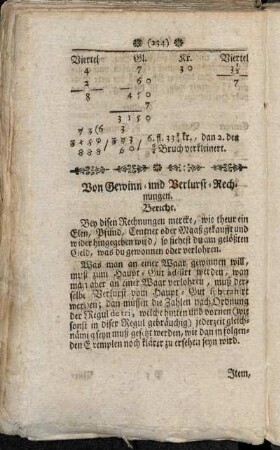 (234)
Viertel Gl. Kr. Viertel
4 7 30 3½
2 60 7
8 450
7
3150
6 fl. 33¾ kr., dan 2. den
Bruch verkleinert.
Von Gewinn- und Verlurst-Rech-
nungen.
Bericht.
Bey disen Rechnungen mercke, wie theur ein
Elen, Pfund, Centner oder Maaß gekaufft und
wider hingegeben wird, so siehest du am gelößten
Geld, was du gewonnen oder verlohren.
Was man an einer Waar gewinnen will,
muß zum Haupt-Gut addirt werden, wan
man aber an einer Waar verlohren, muß der-
selbe Verlurst vom Haupt-Gut subtrahirt
werden; dan müssen die Zahlen nach Ordnung
der Regul detri, welche hinten und vornen (wie
sonst in diser Regul gebräuchig) jederzeit gleich-
nämig seyn muß gesetzt werden, wie dan in folgen-
den Exemplen noch klärer zu ersehen seyn wird.
Item,